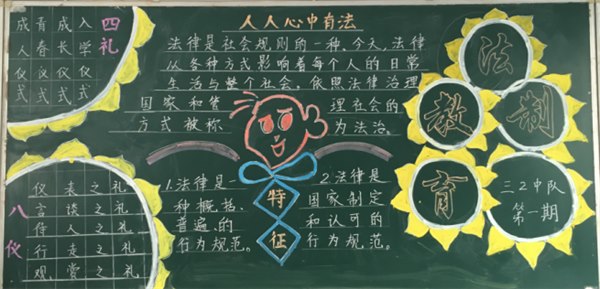 四礼
入学仪式
成长仪式
青春仪式
成人仪式
八仪
仪表之礼
言谈之礼
待人之礼
行走之礼
观赏之礼
人人心中有法
法律是社会规则的一种、今天,法律
从各种方式影响着每个人的日常
生活与整个社会。依照法律治理
国家和管理社会的
方式被称为法治。
特征
1.法律是
种概括、
普遍的
行为规范。
2.法律是
国家制定
和认可的
行为规范。
法制教育
三2中队
第一期